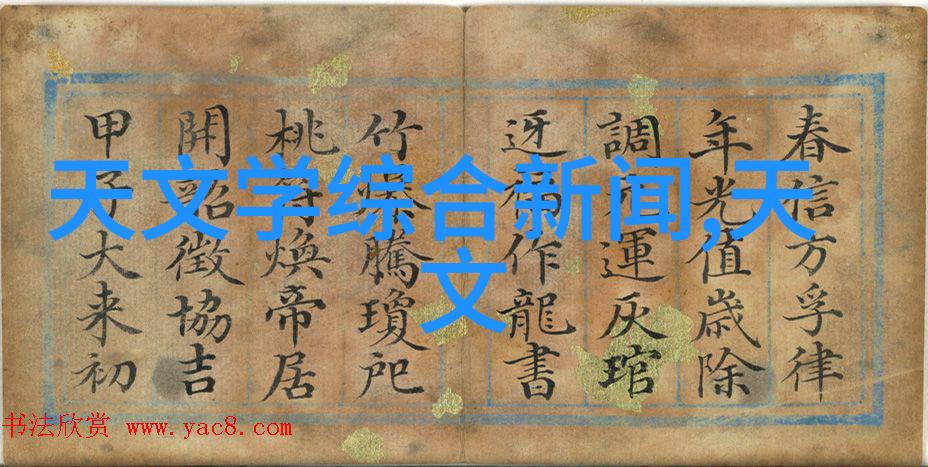 春信方孚律
年光值歳除
調運灰琯
迓福作龍書
竹爆騰瓊
桃符煥帝居
開韶徵協吉
甲子大来初
天文学综合新闻,天
文
书法欣赏 www.yac8.com